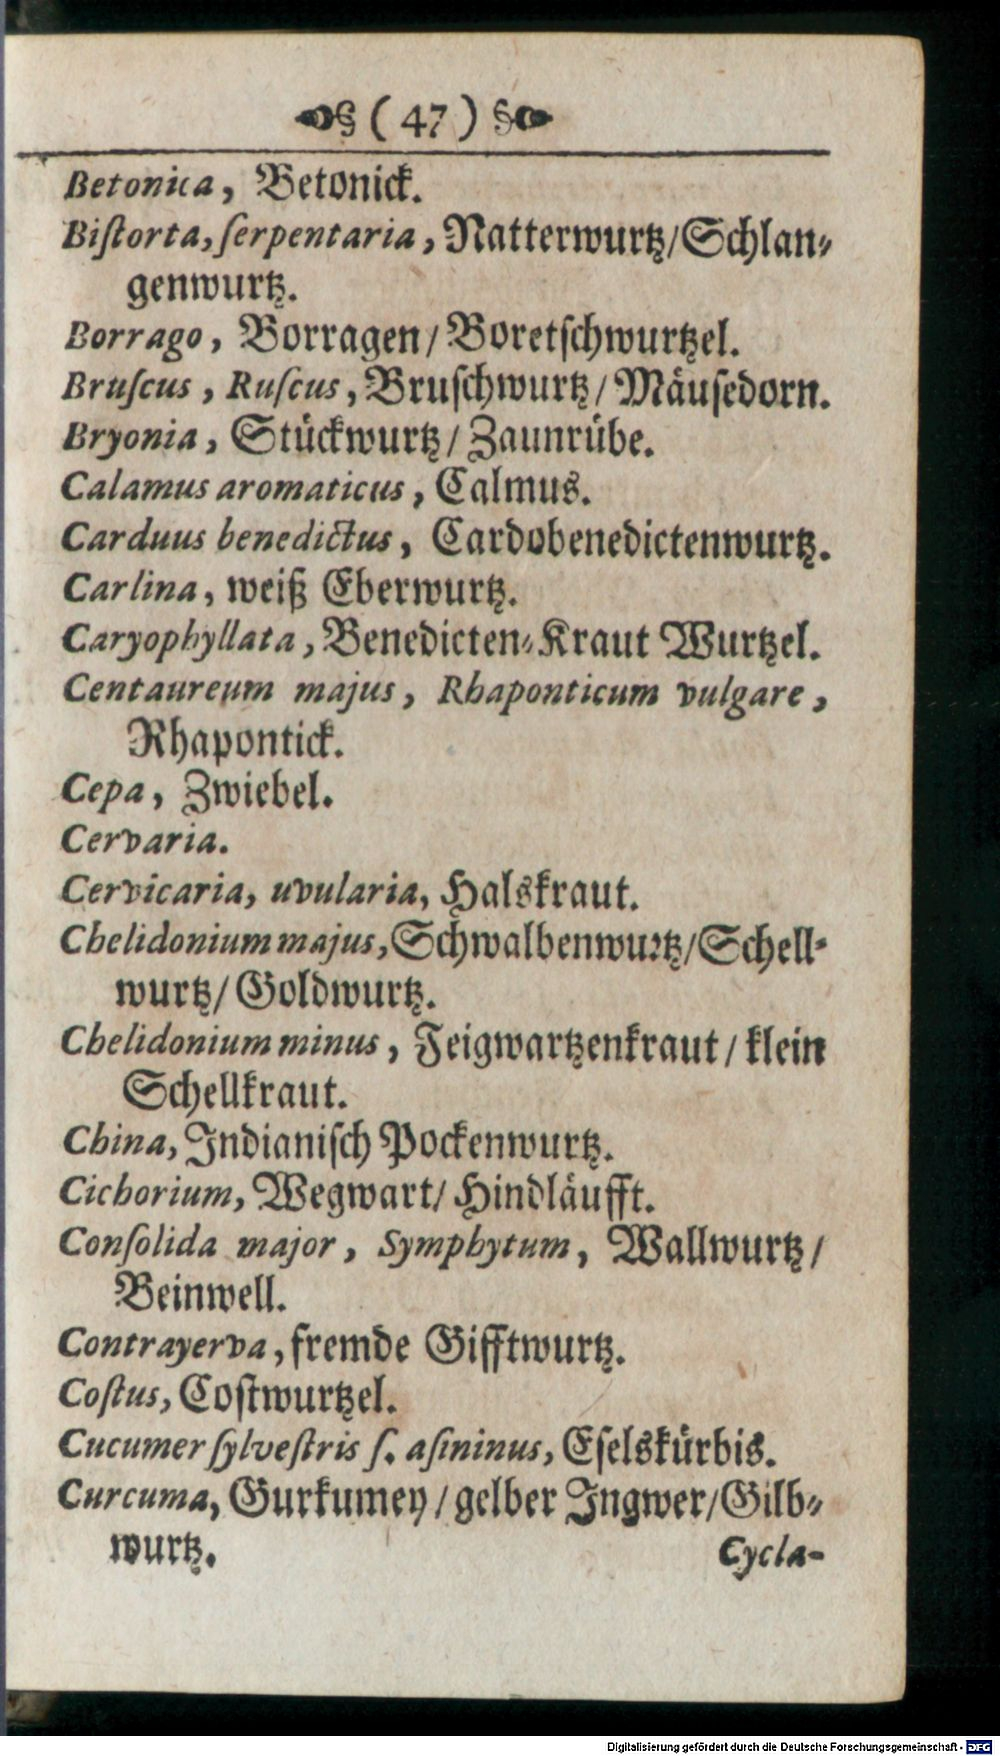 § ( 47 ) §
Betonica, Betonick.
Biſtorta, ſerpentaria, Natterwurtz/Schlan-
genwurtz.
Borrago, Borragen/Boretſchwurtzel.
Bruſcus, Ruſcus, Bruſchwurtz/Mäuſedorn.
Bryonia, Stückwurtz/Zaunrübe.
Calamus aromaticus, Calmus.
Carduus benedictus, Cardobenedictenwurtz.
Carlina, weiß Eberwurtz.
Caryophyllata, Benedicten-Kraut Wurtzel.
Centaureum majus, Rhaponticum vulgare,
Rhapontick.
Cepa, Zwiebel.
Cervaria.
Cervicaria, uvularia, Halskraut.
Chelidonium majus, Schwalbenwurtz/Schell-
wurtz/Goldwurtz.
Chelidonium minus, Feigwartzenkraut/klein
Schellkraut.
China, Indianiſch Pockenwurtz.
Cichorium, Wegwart/Hindläufft.
Conſolida major, Symphytum, Wallwurtz/
Beinwell.
Contrayerva, fremde Gifftwurtz.
Coſtus, Coſtwurtzel.
Cucumer ſylveſtris ſ. aſininus, Eſelskürbis.
Curcuma, Gurkumey/gelber Ingwer/Gilb-
wurtz. Cycla-
Digitalisierung gefördert durch die Deutsche Forschungsgemeinschaft - DFG